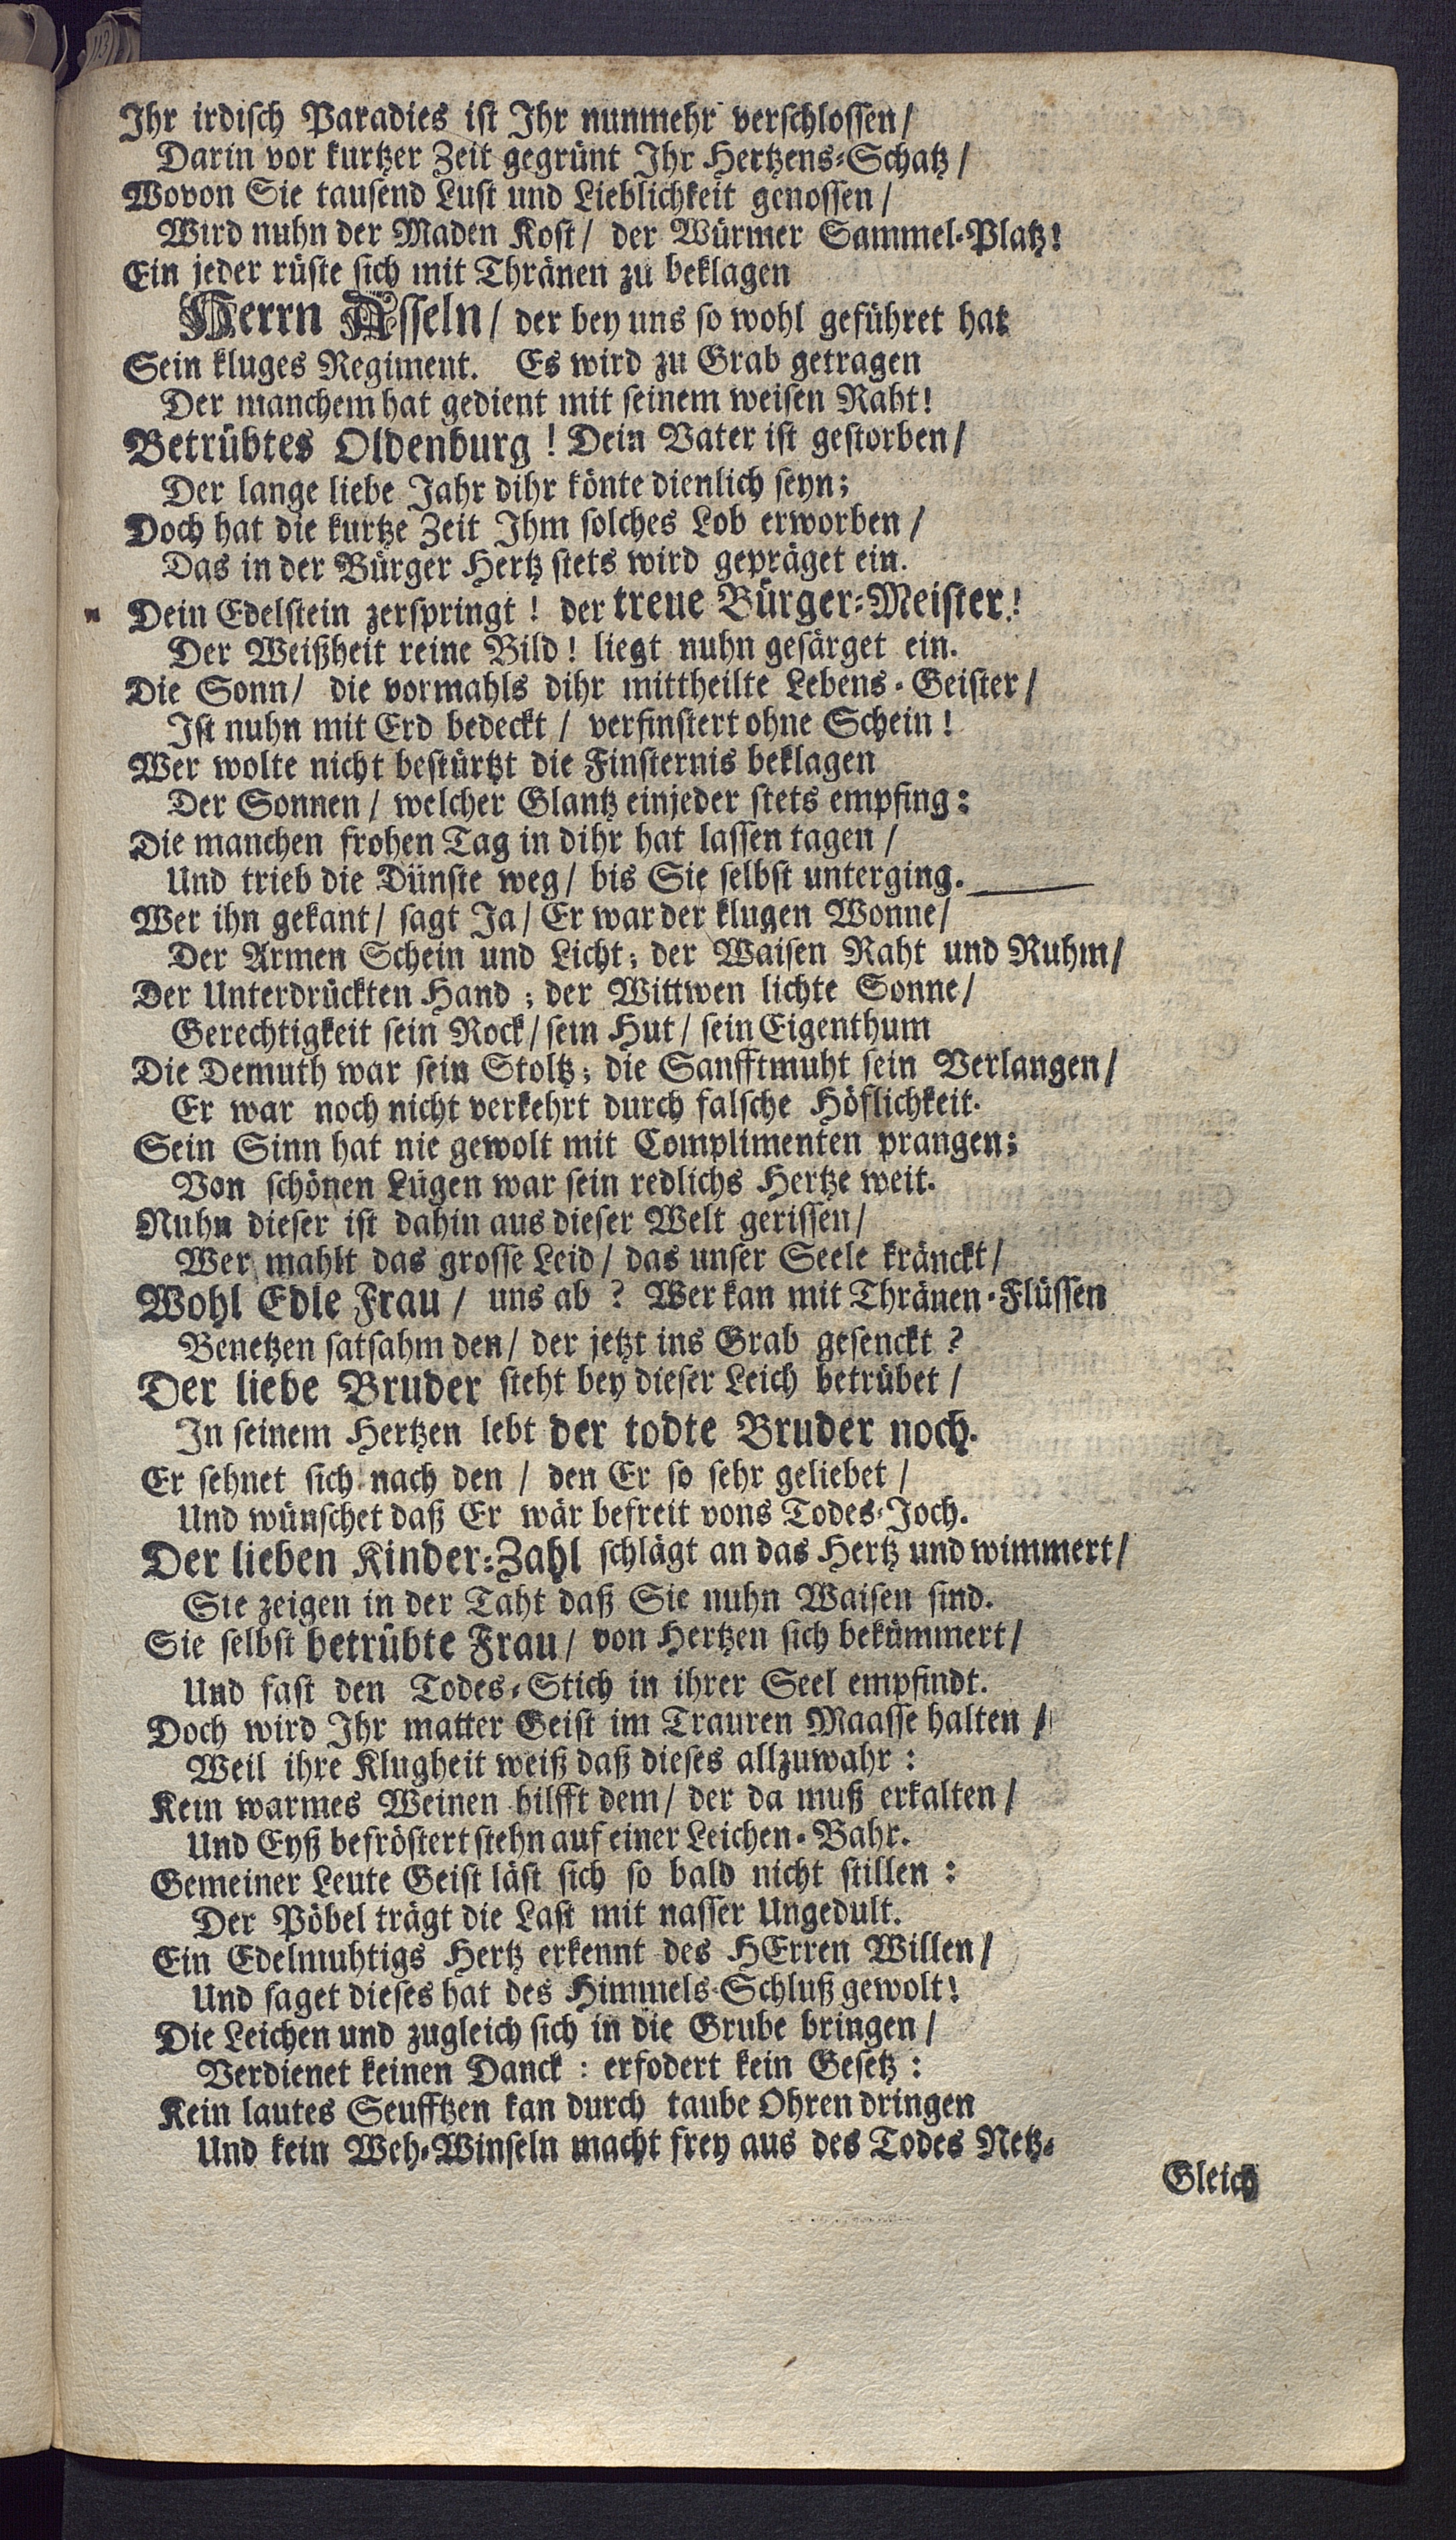 Ihr irdisch Paradies ist Ihr nunmehr verschlossen/
Darin vor kurtzer Zeit gegrünt Ihr Hertzens-Schatz/
Wovon Sie tausend Lust und Lieblichkeit genossen/
Wird nuhn der Maden Kost/ der Würmer Sammel-Platz!
Ein jeder rüste sich mit Thränen zu beklagen
Herrn Asseln/ der bey uns so wohl geführet hat
Sein kluges Regiment. Es wird zu Grab getragen
Der manchem hat gedient mit seinem weisen Raht!
Betrübtes Oldenburg! Dein Vater ist gestorben/
Der lange liebe Jahr dihr könte dienlich seyn;
Doch hat die kurtze Zeit Ihm solches Lob erworben/
Das in der Bürger Hertz stets wird gepräget ein.
Dein Edelstein zerspringt! der treue Bürger-Meister!
Der Weißheit reine Bild! liegt nuhn gesärget ein.
Die Sonn/ die vormahls dihr mittheilte Lebens-Geister/
Ist nuhn mit Erd bedeckt/ verfinstert ohne Schein!
Wer wolte nicht bestürtzt die Finsternis beklagen
Der Sonnen/ welcher Glantz einjeder stets empfing:
Die manchen frohen Tag in dihr hat lassen tagen/
Und trieb die Dünste weg/ bis Sie selbst unterging.
Wer ihn gekant/ sagt Ja/ Er war der klugen Wonne/
Der Armen Schein und Licht; der Waisen Raht und Ruhm/
Der Unterdrückten Hand; der Wittwen lichte Sonne/
Gerechtigkeit sein Rock/ sein Hut/ sein Eigenthum
Die Demuth war sein Stoltz; die Sanfftmuht sein Verlangen/
Er war noch nicht verkehrt durch falsche Höflichkeit.
Sein Sinn hat nie gewolt mit Complimenten prangen;
Von schönen Lügen war sein redlichs Hertze weit.
Nuhn dieser ist dahin aus dieser Welt gerissen/
Wer mahlt das grosse Leid/ das unser Seele kränckt/
Wohl Edle Frau/ uns ab? Wer kan mit Thränen-Flüssen
Benetzen satsahm den/ der jetzt ins Grab gesenckt?
Der liebe Bruder steht bey dieser Leich betrübet/
In seinem Hertzen lebt der todte Bruder noch.
Er sehnet sich nach den/ den Er so sehr geliebet/
Und wünschet daß Er wär befreit vons Todes-Joch.
Der lieben Kinder-Zahl schlägt an das Hertz und wimmert/
Sie zeigen in der Taht daß Sie nuhn Waisen sind.
Sie selbst betrübte Frau/ von Hertzen sich bekümmert/
Und fast den Todes-Stich in ihrer Seel empfindt.
Doch wird Ihr matter Geist im Trauren Maasse halten/
Weil ihre Klugheit weiß daß dieses allzuwahr:
Kein warmes Weinen hilfft dem/ der da muß erkalten/
Und Eyß befröstert stehn auf einer Leichen-Bahr.
Gemeiner Leute Geist läst sich so bald nicht stillen:
Der Pöbel trägt die Last mit nasser Ungedult.
Ein Edelmuhtigs Hertz erkennt des HErren Willen/
Und saget dieses hat des Himmels-Schluß gewolt!
Die Leichen und zugleich sich in die Grube bringen/
Verdienet keinen Danck: erfodert kein Gesetz:
Kein lautes Seufftzen kan durch taube Ohren dringen
Und kein Weh-Winseln macht frey aus des Todes Netz-
Gleich